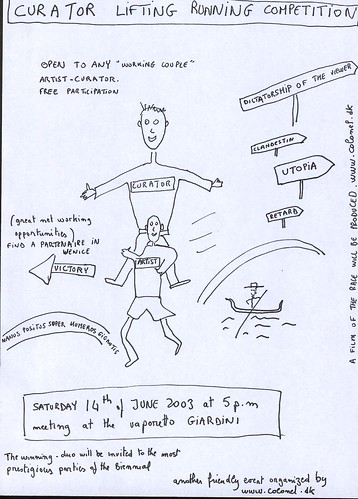 CURATOR LIFTING RUNNING COMPETITION
OPEN TO ANY "WORKING COUPLE"
ARTIST-CURATOR.
FREE PARTICIPATION
DICTATORSHIP OF THE VIEWER
CLANDESTIN
UTOPIA
RETARD
CURATOR
ARTIST
(great net working
opportunities)
FIND A PARTENAIRE IN
VENICE
VICTORY
NANOS POSITOS SUPER HUMEROS GIGANTIS
A FILM OF THE RACE WILL BE PRODUCED. www.colonel.dk
SATURDAY 14th of JUNE 2003 at 5 p.m
meeting at the vaporetto GIARDINI
The winning-duo will be invited to the most
prestigious parties of the Biennial
another friendly event organized by
www.colonel.dk